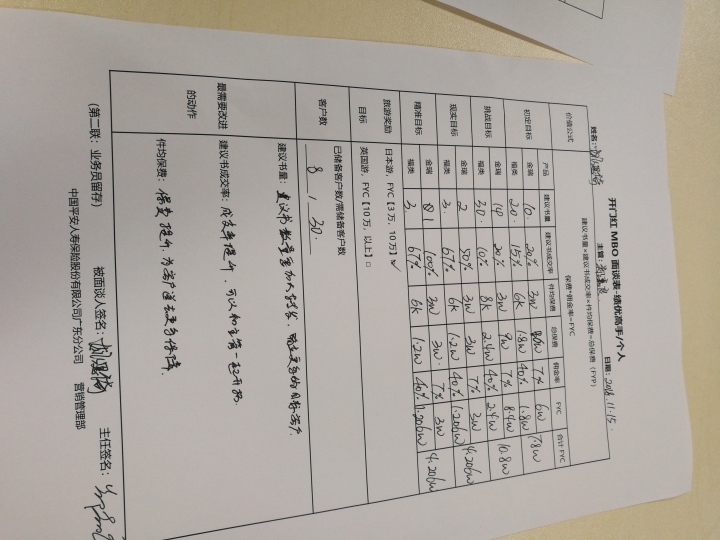 开门红 MBO 面谈表-绩优高手/个人
姓名: 主管: 日期: 2018.11.15.
价值公式 建议书量×建议书成交率×件均保费=总保费(FYP)
保费*佣金率=FYC
产品 建议书量 建议书成交率 件均保费 总保费 佣金率 FYC 合计 FYC
初定目标 金瑞 10. 20% 3W 7% 6W 7.8W
福类 20. 15% 6K 1.8W 40% 1.8W
挑战目标 金瑞 14 20% 3W 9W 7% 8.4W 10.8W
福类 30. 10% 8K 2.4W 40% 2.4W
现实目标 金瑞 2 50% 3W 3W 7% 3W 4.206W
福类 3. 67% 6K 1.2W 40% 1.206W
精准目标 金瑞 1 100% 3W 3W. 7% 3W 4.206W
福类 3. 67% 6K 1.2W 40% 1.206W
旅游奖励目标 日本游,FYC【3万,10万】✓
英国游,FYC【10万,以上】□
客户数 已储备客户数/需储备客户数
8 / 30.
最需要改进的动作 建议书量:建议书数量要加大 更多的目标客户.
建议书成交率:成交率提升,可以和主管一起开拓.
件均保费:保费提升,为客户送去更多保障.
(第二联:业务员留存) 被面谈人签名: 主任签名:
中国平安人寿保险股份有限公司广东分公司 营销管理部